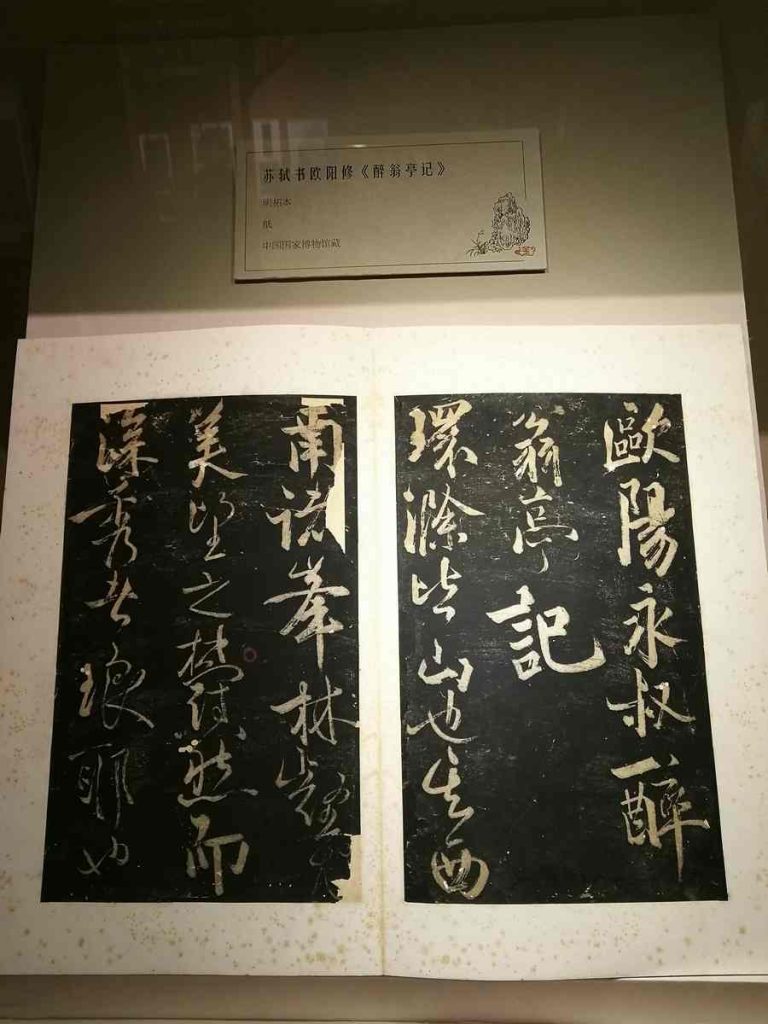 苏轼书欧阳修《醉翁亭记》
明拓本
纸
中国国家博物馆藏
歐陽永叔醉
翁亭記
環滁皆山也其西
南諸峯林壑尤
美望之蔚然而
深秀者琅耶也